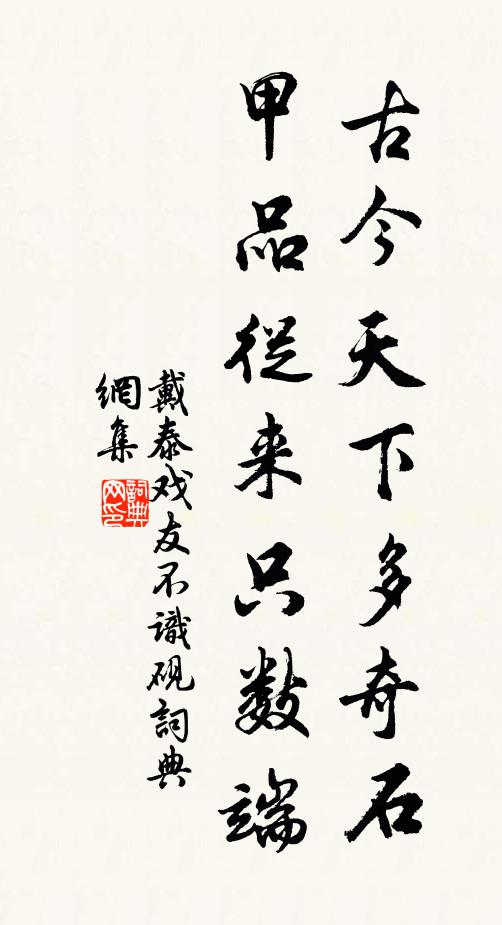 古今天下多奇石
甲品從来只数端
戴泰戏友不識硯詞典
網集
詞典網印